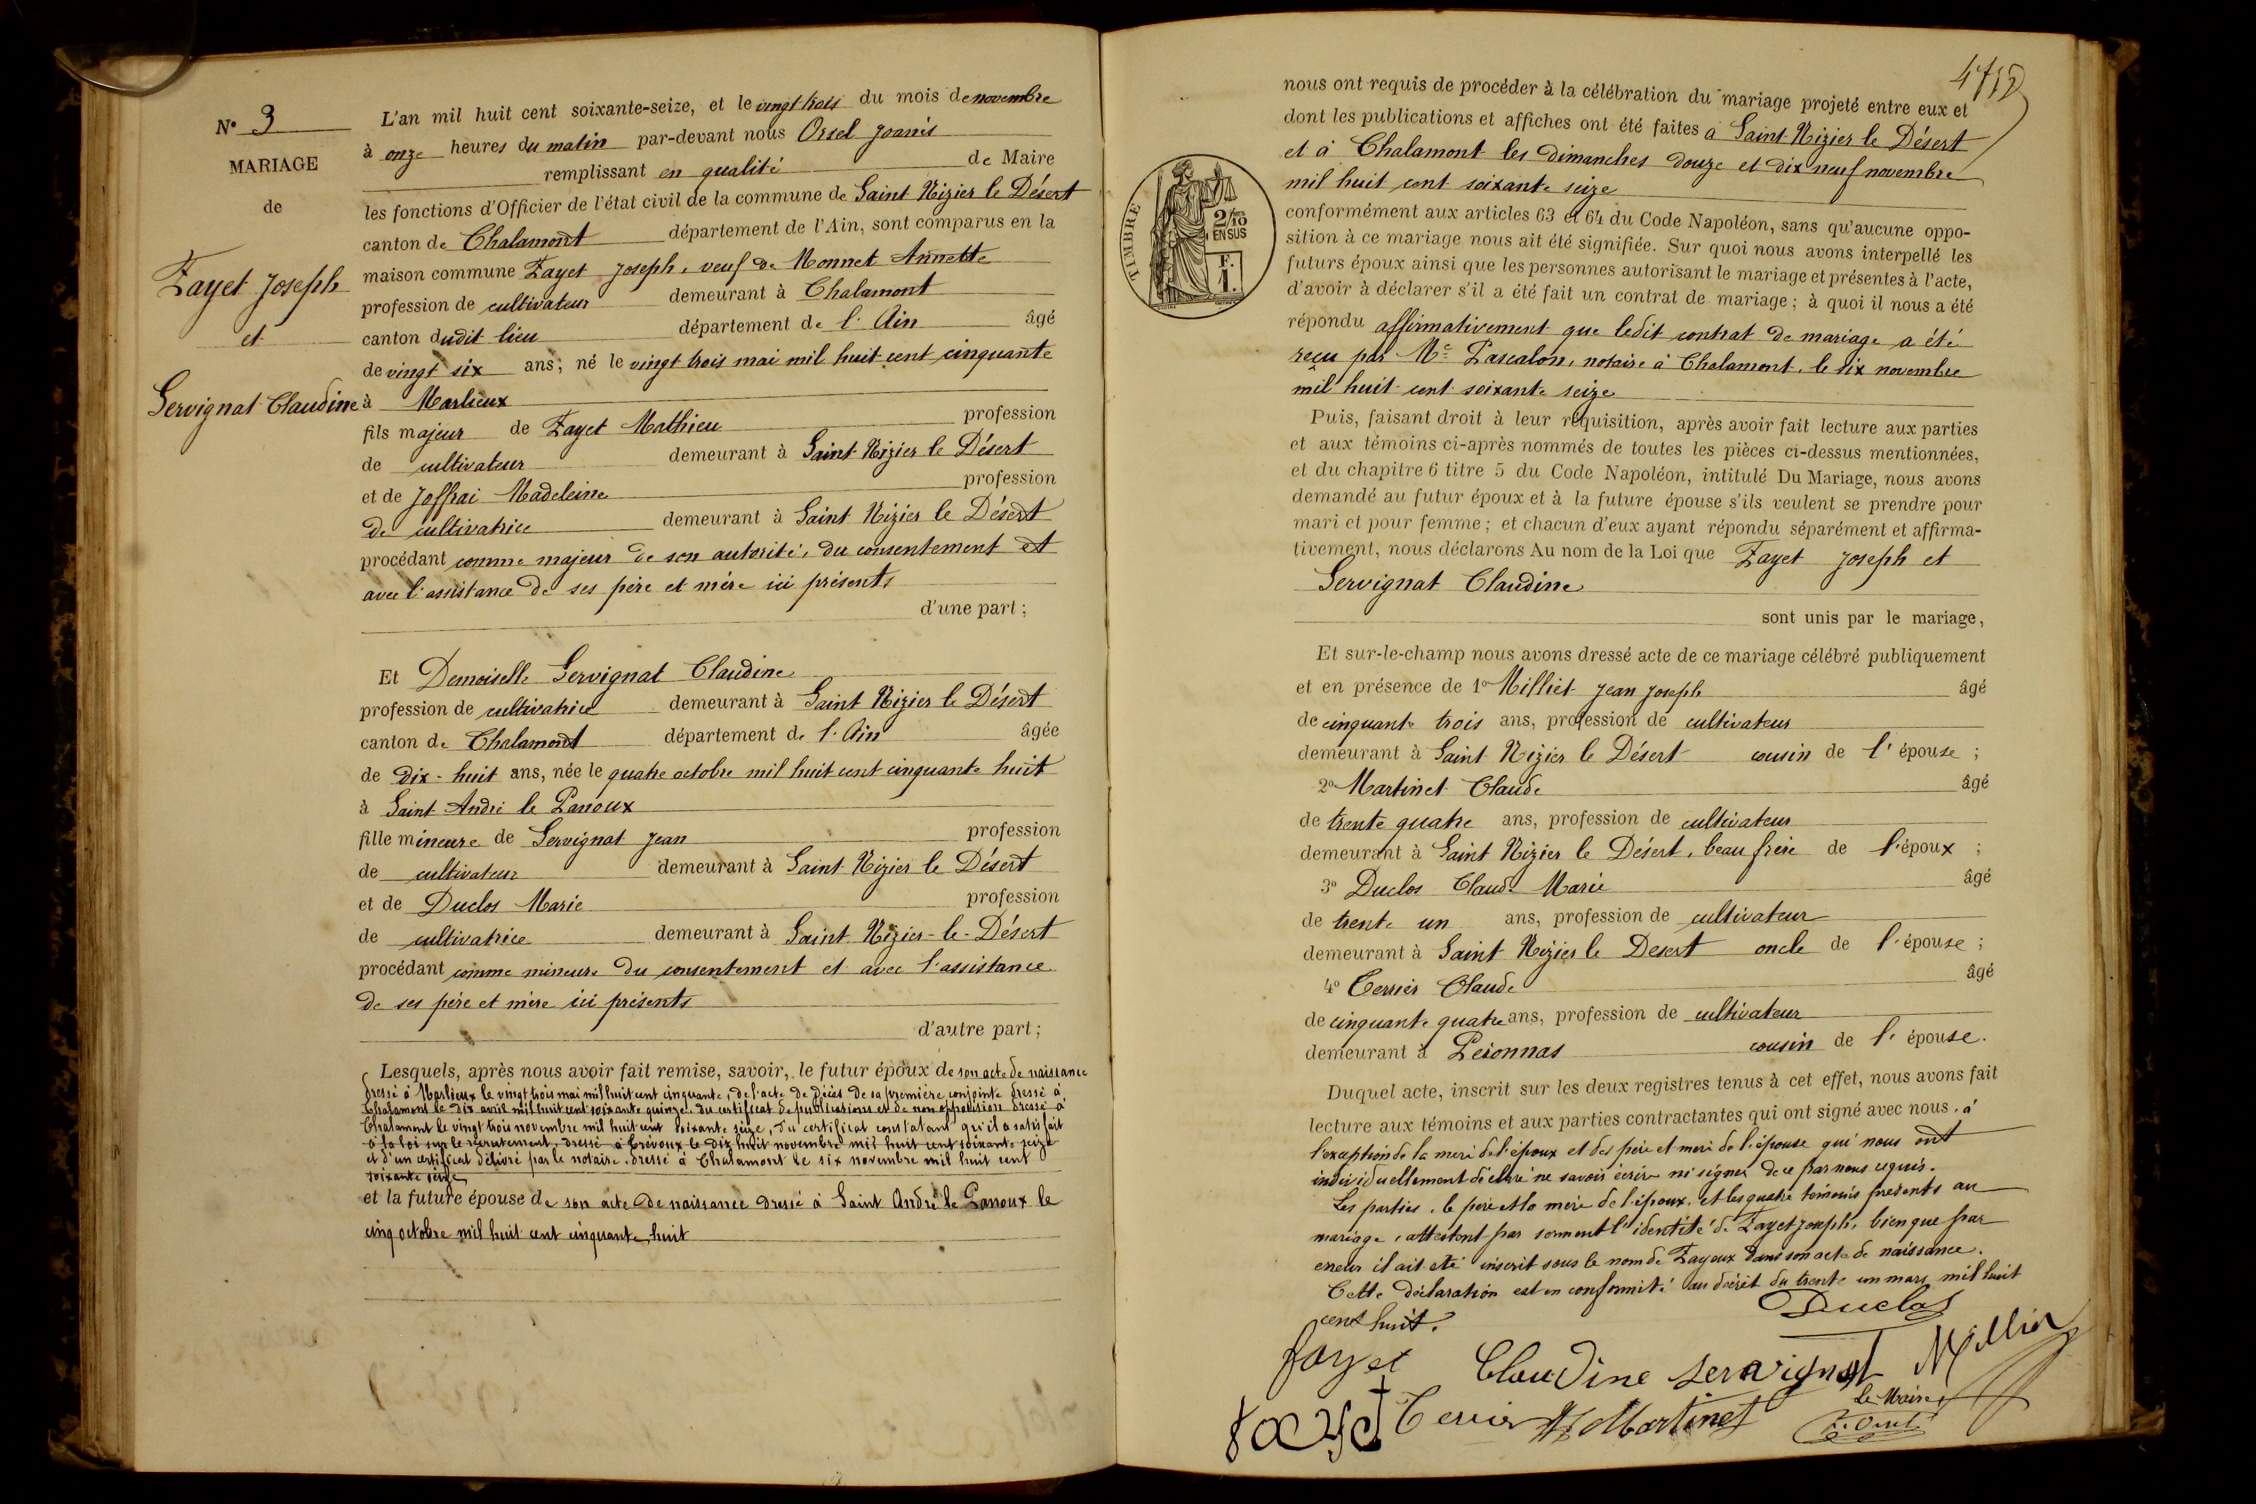 N° 3
MARIAGE
de
Fayet Joseph
et
Servignat Claudine
L'an mil huit cent soixante-seize, et le vingt trois du mois de novembre
à onze heures du matin par-devant nous Orsel Joanis
remplissant en qualité de Maire
les fonctions d'Officier de l'état civil de la commune de Saint Nizier le Désert
canton de Chalamont département de l'Ain, sont comparus en la
maison commune Fayet Joseph, veuf de Monnet Annette
profession de cultivateur demeurant à Chalamont
canton dudit lieu département de l'Ain âgé
de vingt six ans; né le vingt trois mai mil huit cent cinquante
à Marlieux
fils majeur de Fayet Mathieu profession
de cultivateur demeurant à Saint Nizier le Désert
et de Joffrai Madeleine profession
de cultivatrice demeurant à Saint Nizier le Désert
procédant comme majeur de son autorité, du consentement et
avec l'assistance de ses père et mère ici présents
d'une part;
Et Demoiselle Servignat Claudine
profession de cultivatrice demeurant à Saint Nizier le Désert
canton de Chalamont département de l'Ain âgée
de dix-huit ans, née le quatre octobre mil huit cent cinquante huit
à Saint André le Panoux
fille mineure de Servignat Jean profession
de cultivateur demeurant à Saint Nizier le Désert
et de Duclos Marie profession
de cultivatrice demeurant à Saint Nizier-le-Désert
procédant comme mineure du consentement et avec l'assistance
de ses père et mère ici présents
d'autre part;
Lesquels, après nous avoir fait remise, savoir, le futur époux de son acte de naissance
dressé à Marlieux le vingt trois mai mil huit cent cinquante, de l'acte de décès de sa première conjointe dressé à
Chalamont le dix avril mil huit cent soixante quinze. du certificat de publications et de non opposition dressé à
Chalamont le vingt trois novembre mil huit cent soixante seize, d'u certificat constatant qu'il a satisfait
à la loi sur le recrutement, dressé à Trévoux le dix huit novembre mil huit cent soixante seize
et d'un certificat délivré par le notaire, dressé à Chalamont le six novembre mil huit cent
soixante seize
et la future épouse de son acte de naissance dressé à Saint André le Panoux le
cinq octobre mil huit cent cinquante huit
nous ont requis de procéder à la célébration du mariage projeté entre eux et
dont les publications et affiches ont été faites à Saint Nizier le Désert
et à Chalamont les dimanches douze et dix neuf novembre
mil huit cent soixante seize
conformément aux articles 63 et 64 du Code Napoléon, sans qu'aucune oppo-
sition à ce mariage nous ait été signifiée. Sur quoi nous avons interpellé les
futurs époux ainsi que les personnes autorisant le mariage et présentes à l'acte,
d'avoir à déclarer s'il a été fait un contrat de mariage; à quoi il nous a été
répondu affirmativement que ledit contrat de mariage a été
reçu par Me Pascalon, notaire à Chalamont, le six novembre
mil huit cent soixante seize
Puis, faisant droit à leur réquisition, après avoir fait lecture aux parties
et aux témoins ci-après nommés de toutes les pièces ci-dessus mentionnées,
et du chapitre 6 titre 5 du Code Napoléon, intitulé Du Mariage, nous avons
demandé au futur époux et à la future épouse s'ils veulent se prendre pour
mari et pour femme; et chacun d'eux ayant répondu séparément et affirma-
tivement, nous déclarons Au nom de la Loi que Fayet Joseph et
Servignat Claudine
sont unis par le mariage,
Et sur-le-champ nous avons dressé acte de ce mariage célébré publiquement
et en présence de 1° Milliet Jean Joseph âgé
de cinquante trois ans, profession de cultivateur
demeurant à Saint Nizier le Désert cousin de l'épouse;
2° Martinet Claude âgé
de trente quatre ans, profession de cultivateur
demeurant à Saint Nizier le Désert, beau frère de l'époux;
3° Duclos Claude Marie âgé
de trente un ans, profession de cultivateur
demeurant à Saint Nizier le Desert oncle de l'épouse;
4° Terrier Claude âgé
de cinquante quatre ans, profession de cultivateur
demeurant à Peronnas cousin de l'épouse.
Duquel acte, inscrit sur les deux registres tenus à cet effet, nous avons fait
lecture aux témoins et aux parties contractantes qui ont signé avec nous. à
l'exception de la mère de l'époux et des père et mère de l'épouse qui nous ont
individuellement déclaré ne savoir écrire ni signer de ce par nous requis.
Les parties, le père et la mère de l'époux, et les quatre témoins présents au
mariage, attestent par serment l'identité de Fayet Joseph, bien que par
erreur il ait été inscrit sous le nom de Fayoux dans son acte de naissance.
Cette déclaration est en conformité au décret du trente un mars mil huit
cent huit.
Duclos
fayet Claudine servignat Milliet
fayet Terrier Martinet
Le Maire
J. Orsel
TIMBRE
2/10
EN SUS
F.
1.